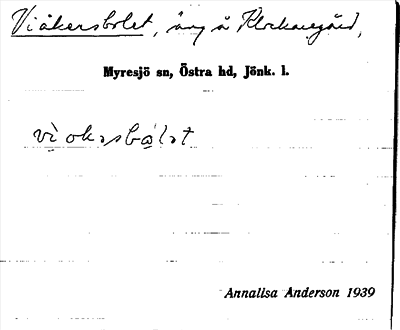 Viåkersbolet, äng å Klockaregård,
Myresjö sn, Östra hd, Jönk. l.
vi̬ okɘsbɷ̬lɘt
Annalisa Anderson 1939